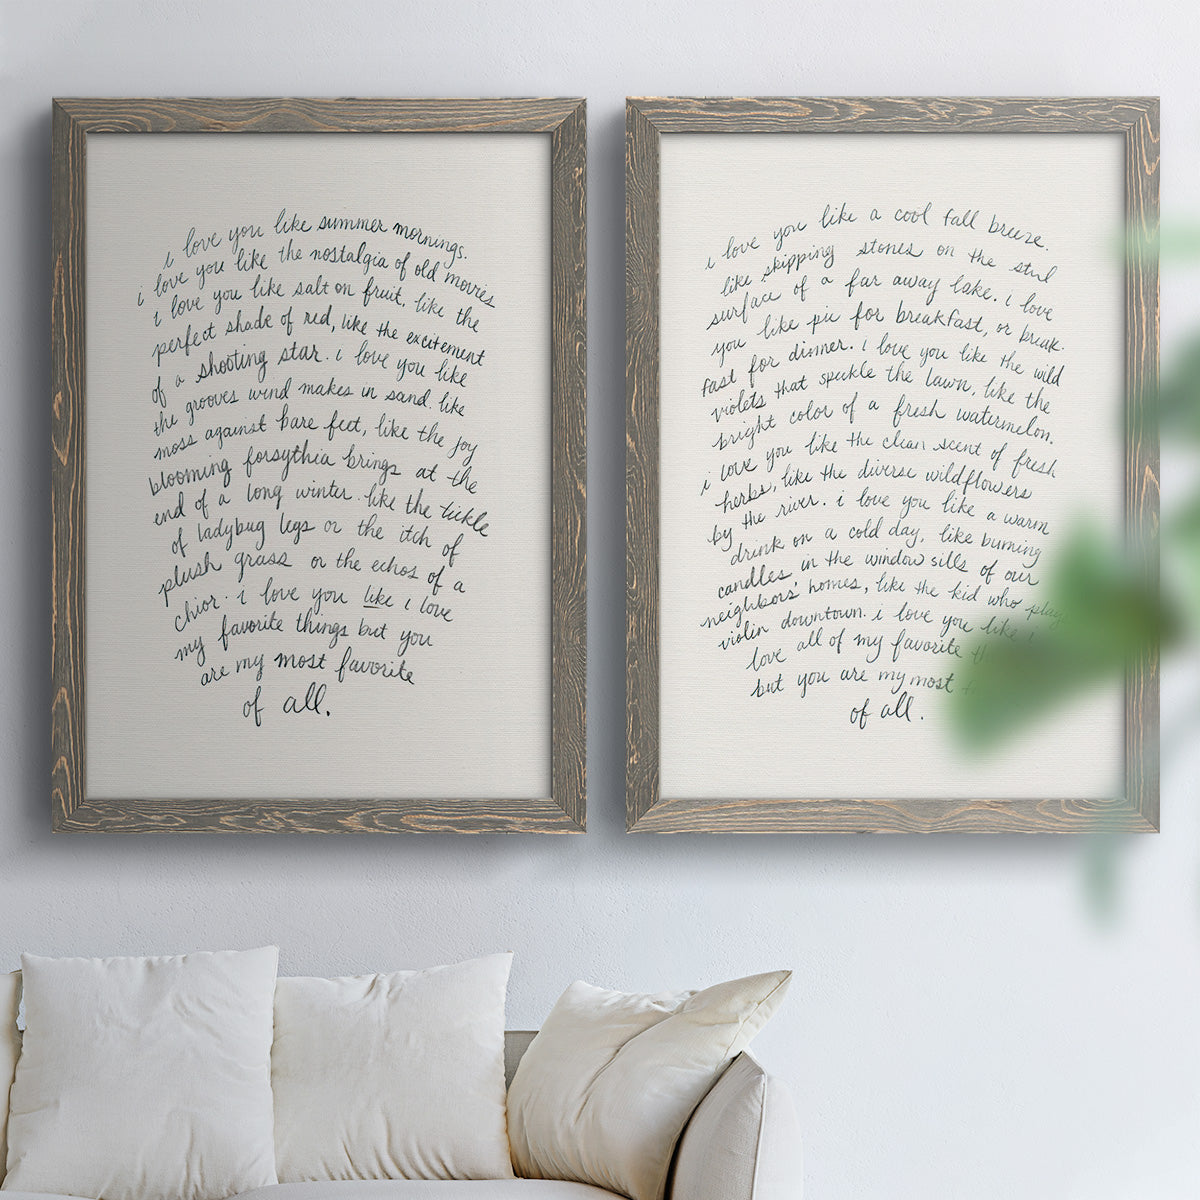 i love you like summer mornings.
i love you like the nostalgia of old movies
i love you like salt on fruit, like the
perfect shade of red, like the excitement
of a shooting star. i love you like
the grooves wind makes in sand. like
moss against bare feet, like the joy
blooming forsythia brings at the
end of a long winter. like the tickle
of ladybug legs or the itch of
plush grass or the echos of a
chior. i love you like i love
my favorite things but you
are my most favorite
of all.
i love you like a cool fall breeze.
like skipping stones on the still
surface of a far away lake. i love
you like pie for breakfast, or break.
fast for dinner. i love you like the wild
violets that speckle the lawn, like the
bright color of a fresh watermelon.
i love you like the clean scent of fresh
herbs, like the diverse wildflowers
by the river. i love you like a warm
drink on a cold day, like burning
candles in the window sills of our
neighbors' homes, like the kid who plays
violin downtown. i love you like i
love all of my favorite
but you are my most
of all.